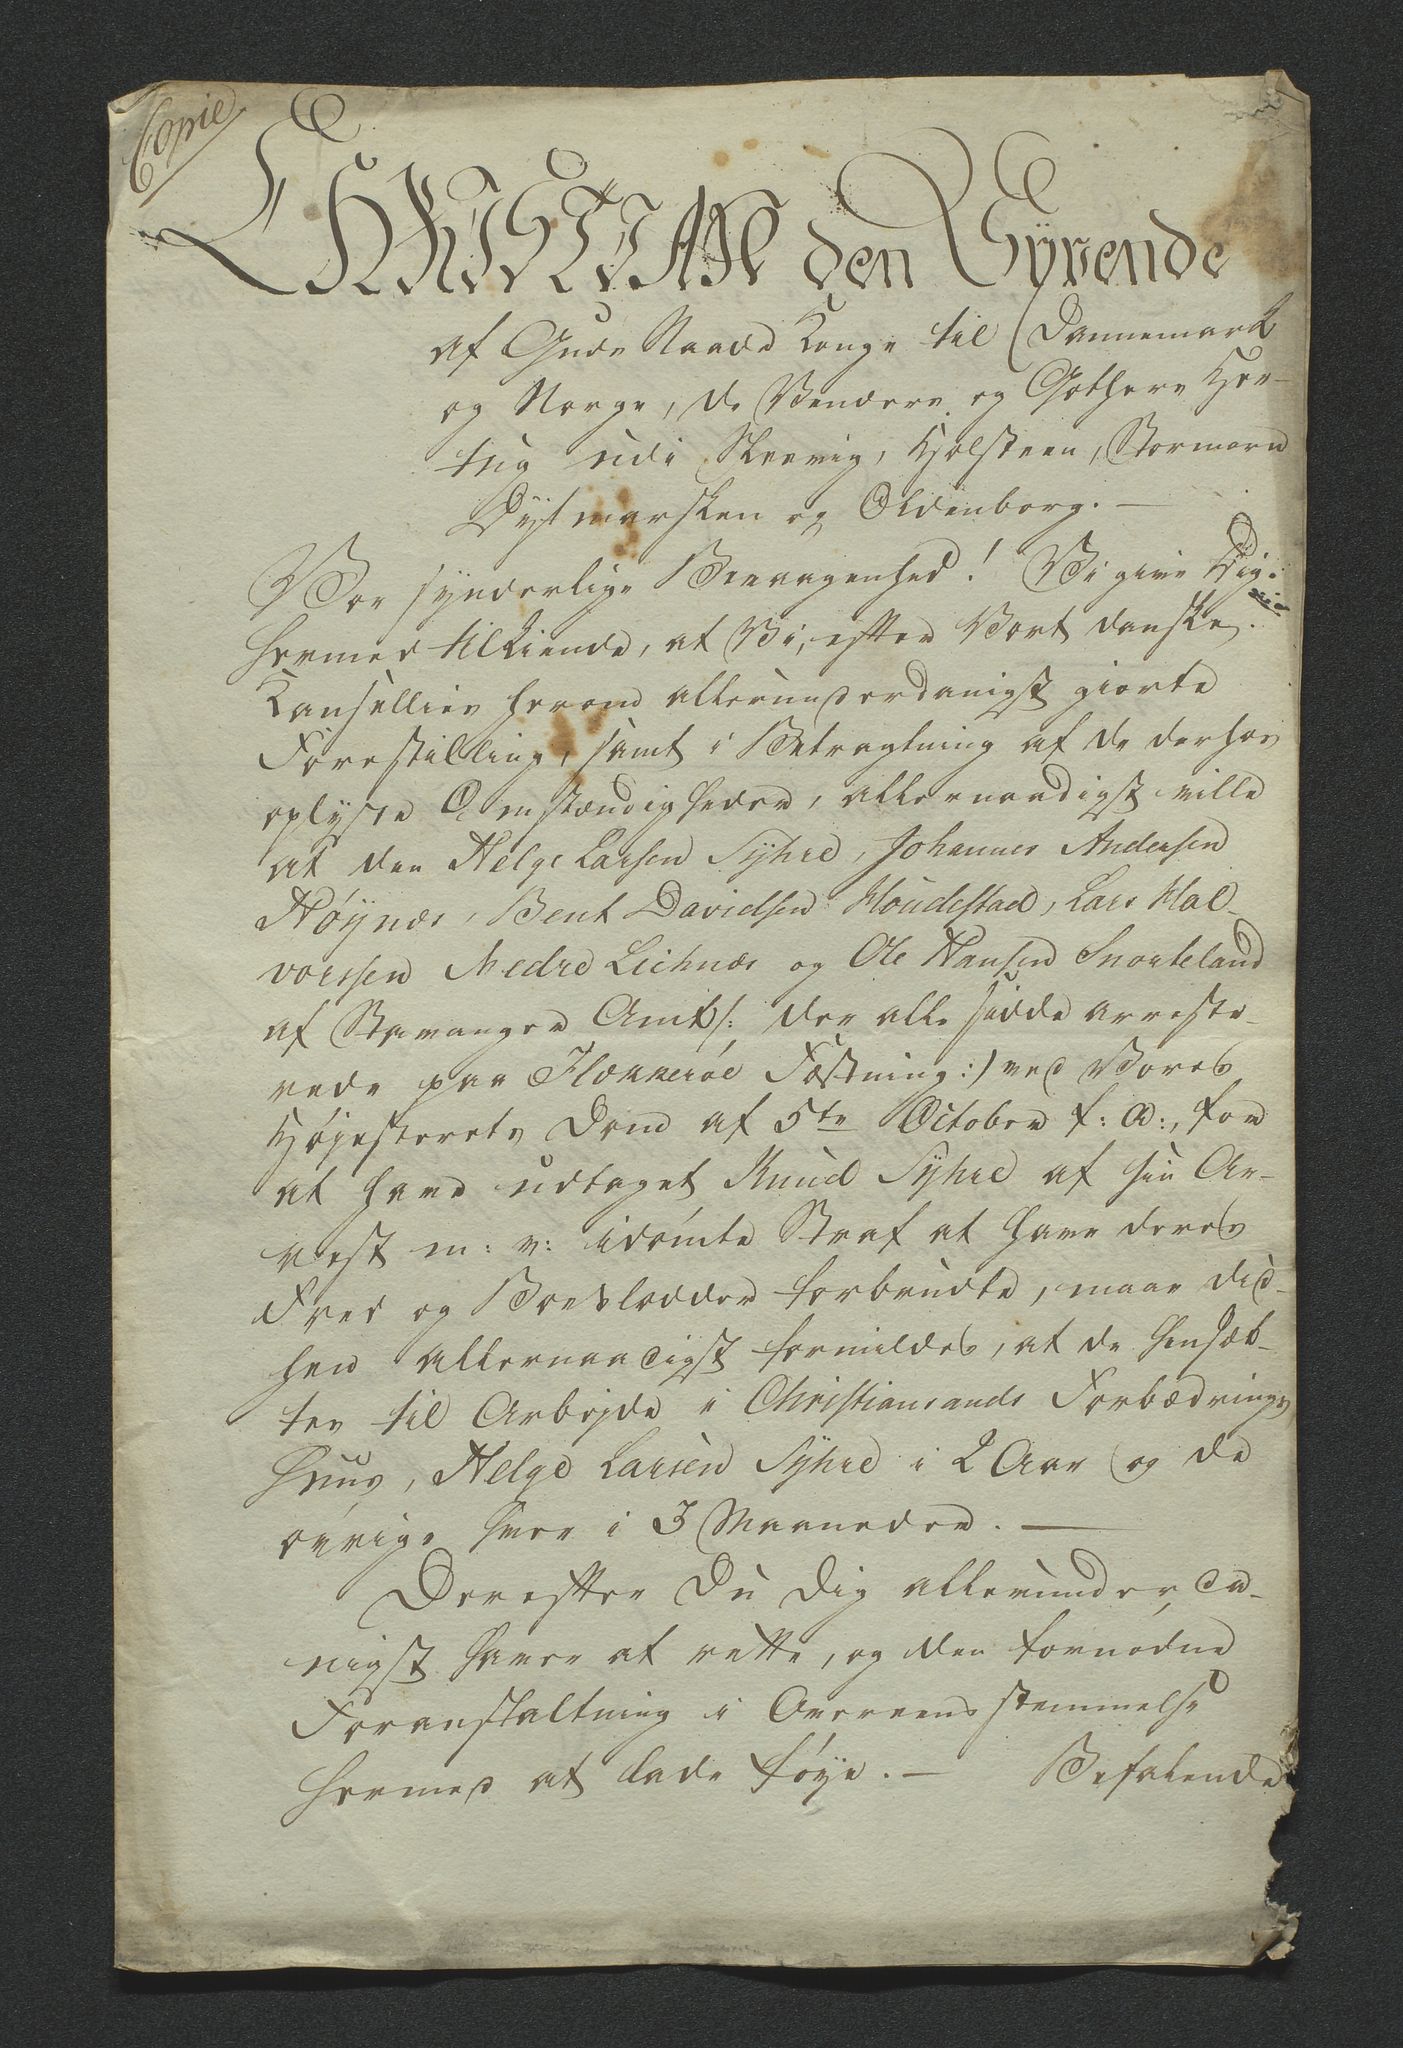 Copie
CHRISTIAN den Syvende
af Guds Naade Konge til Dannemark
og Norge, de Venders og Gothers Her-
tug udi Slesvig, Holsteen, Stormarn
Dytmarsken og Oldenborg. —
Vor synderlige Bevaagenhed! Vi give Dig
hermed tilkiende, at Vi, efter Vort danske
Kansellies herom allerunderdanigst giorte
Forestilling, samt i Betragtning af de derhos
oplyste Omstændigheder, allernaadigst ville
at den Helge Larsen Syhre, Johannes Andersen
Høynæs, Bent Davidsen Houdestad, Lars Hal-
vorssen Nedre Lichnæs og Ole Hansen Snorteland
af Stavanger Amt /: der alle sidde arreste-
rede paa Flækkerøe Fæstning :/ ved Vores
Høyesterets Dom af 5te October f: A:, for
at have udtaget Knud Syhre af sin Ar-
rest m: v: idømte Straf at have deres
Fred og Boeslodder forbrudte, maae did-
hen allernaadigst formildes, at de hensæt-
tes til Arbejde i Christiansands Forbædrings
Huus, Helge Larsen Syhre i 2 Aar og de
øvrige hver i 3 Maaneder. —
Derefter Du Dig allerunderda-
nigst haver at rette, og den fornødne
Foranstaltning i Overeensstemmelse
hermed at lade føye. — Befalende